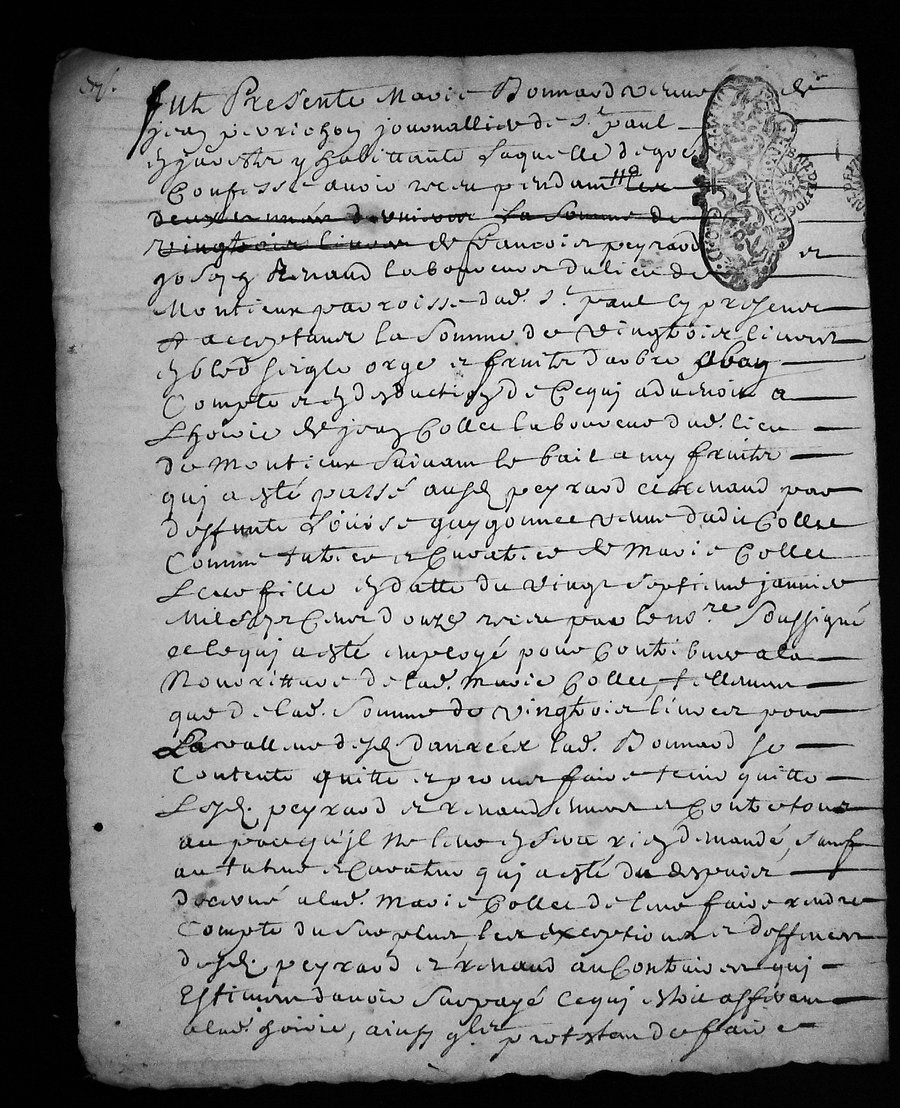 fut Presente Marie Bonnard veuve de
jean peyrichon journallier de St. paul
en Jarestz y habittante laquelle de gré
Confesse avoir receu pendant
deux années
vingt trois livres de francois peyrard et
joseph Renaud laboureurs du lieu de
Montieux parroisse dud. St. paul cy presents
et acceptants la Somme de vingt trois livres
en bled seigle orge et fruits d'arbre
Compte et en deduction de Ce qui a
L'hoirie de jean Collet laboureur dud. lieu
de Montieux Suivant le bail a my fruits
qui a esté passé ausd. peyrard et renaud par
deffunte Louise guygonnet veuve dudit Collet
Comme tutrice et Curatrice de Marie Collet
Leur fille en datte du vingt Septieme janvier
Mil Sept Cent douze receu par le nore. Soussigné
et le qui a esté employé pour Contribuer a la
Nourritture de lad. Marie Collet, tellement
que de lad. Somme de vingt trois livres pour
La valleur desd. danrées lad. Bonnard se
Contente quitte et promet faire tenir quitte
Lesd. peyrard et renaud envers et Contre tous
au peu qu'jl ne leur en Sera rien demandé, Sauf
au tuteur et Curateur qui a esté du depuis
decerné a lad. Marie Collet de leur faire rendre
Compte du Surplus, les exceptions et deffences
desd. peyrard et renaud au Contraire qui
Estiment d'avoir Surpayé Ce qui estoit
a lad. hoirie, ainsy qu'ils protestent de faire